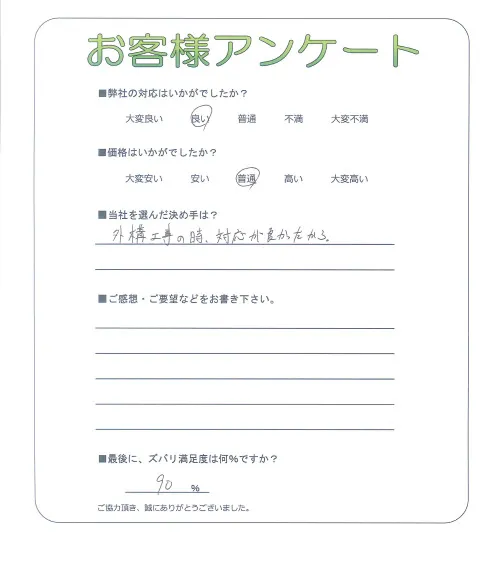 お客様アンケート
■弊社の対応はいかがでしたか？
大変良い 良い 普通 不満 大変不満
■価格はいかがでしたか？
大変安い 安い 普通 高い 大変高い
■当社を選んだ決め手は？
外構工事の時、対応が良かったから。
■ご感想・ご要望などをお書き下さい。
■最後に、ズバリ満足度は何％ですか？
90 ％
ご協力頂き、誠にありがとうございました。